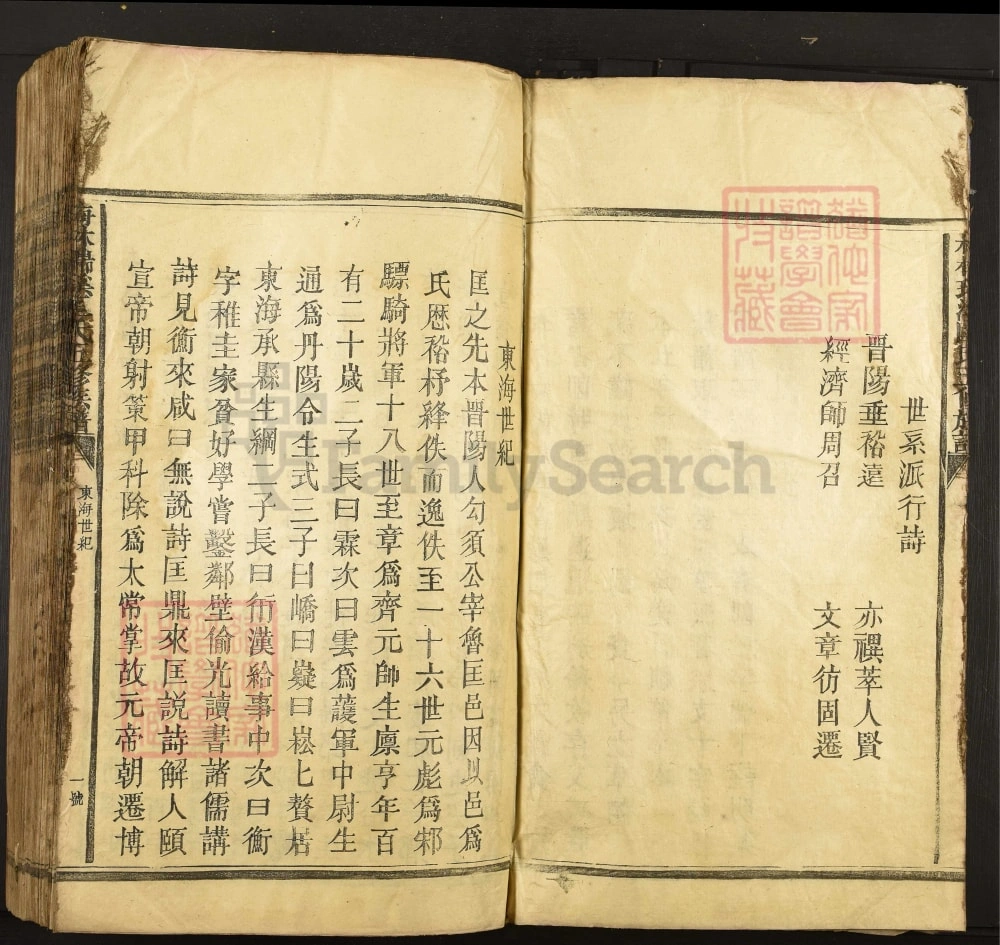 世系派行詩
晋陽垂裕遠 亦禩萃人賢
經濟師周召 文章彷固遷
東海世紀
匡之先本晋陽人勾須公宰魯匡邑因以邑爲
氏厯裕杼綘佚而逸佚至一十六世元彪爲邾
驃騎將軍十八世至章爲齊元帥生廪享年百
有二十歲二子長曰霖次曰雲爲護軍中尉生
通爲丹陽令生式三子曰嶠曰嶷曰崧七贅居
東海承縣生綱二子長曰衎漢給事中次曰衡
字稚圭家貧好學嘗鑿鄰壁偷光讀書諸儒講
詩見衡來咸曰無說詩匡鼎來匡説詩解人頤
宣帝朝射策甲科除爲太常掌故元帝朝遷博
東海世紀
一號
FamilySearch